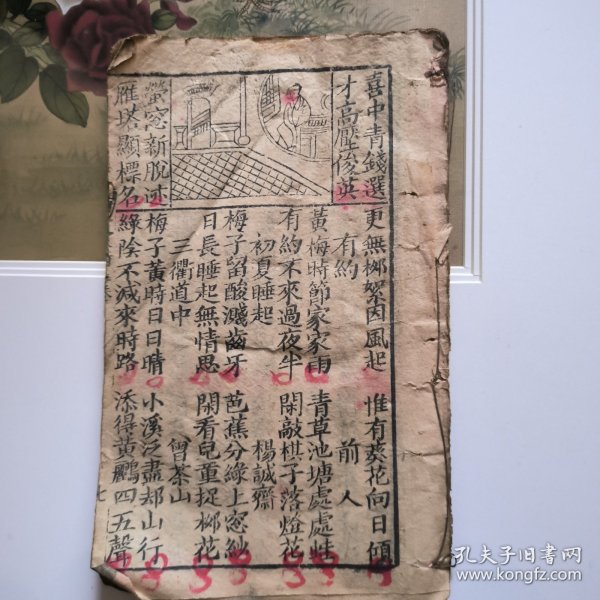 喜中青錢選
才高壓俊英
螢窓新脫迹
雁塔顯標名
更無柳絮因風起　惟有葵花向日傾
有約　前人
黃梅時節家家雨　青草池塘處處蛙
有約不來過夜半　閑敲棋子落燈花
初夏睡起　楊誠齋
梅子留酸濺齒牙　芭蕉分綠上窓紗
日長睡起無情思　閑看兒童捉柳花
三衢道中　曾茶山
梅子黃時日日晴　小溪泛盡却山行
綠陰不減來時路　添得黃鸝四五聲
七
孔夫子旧书网
www.kongfz.com